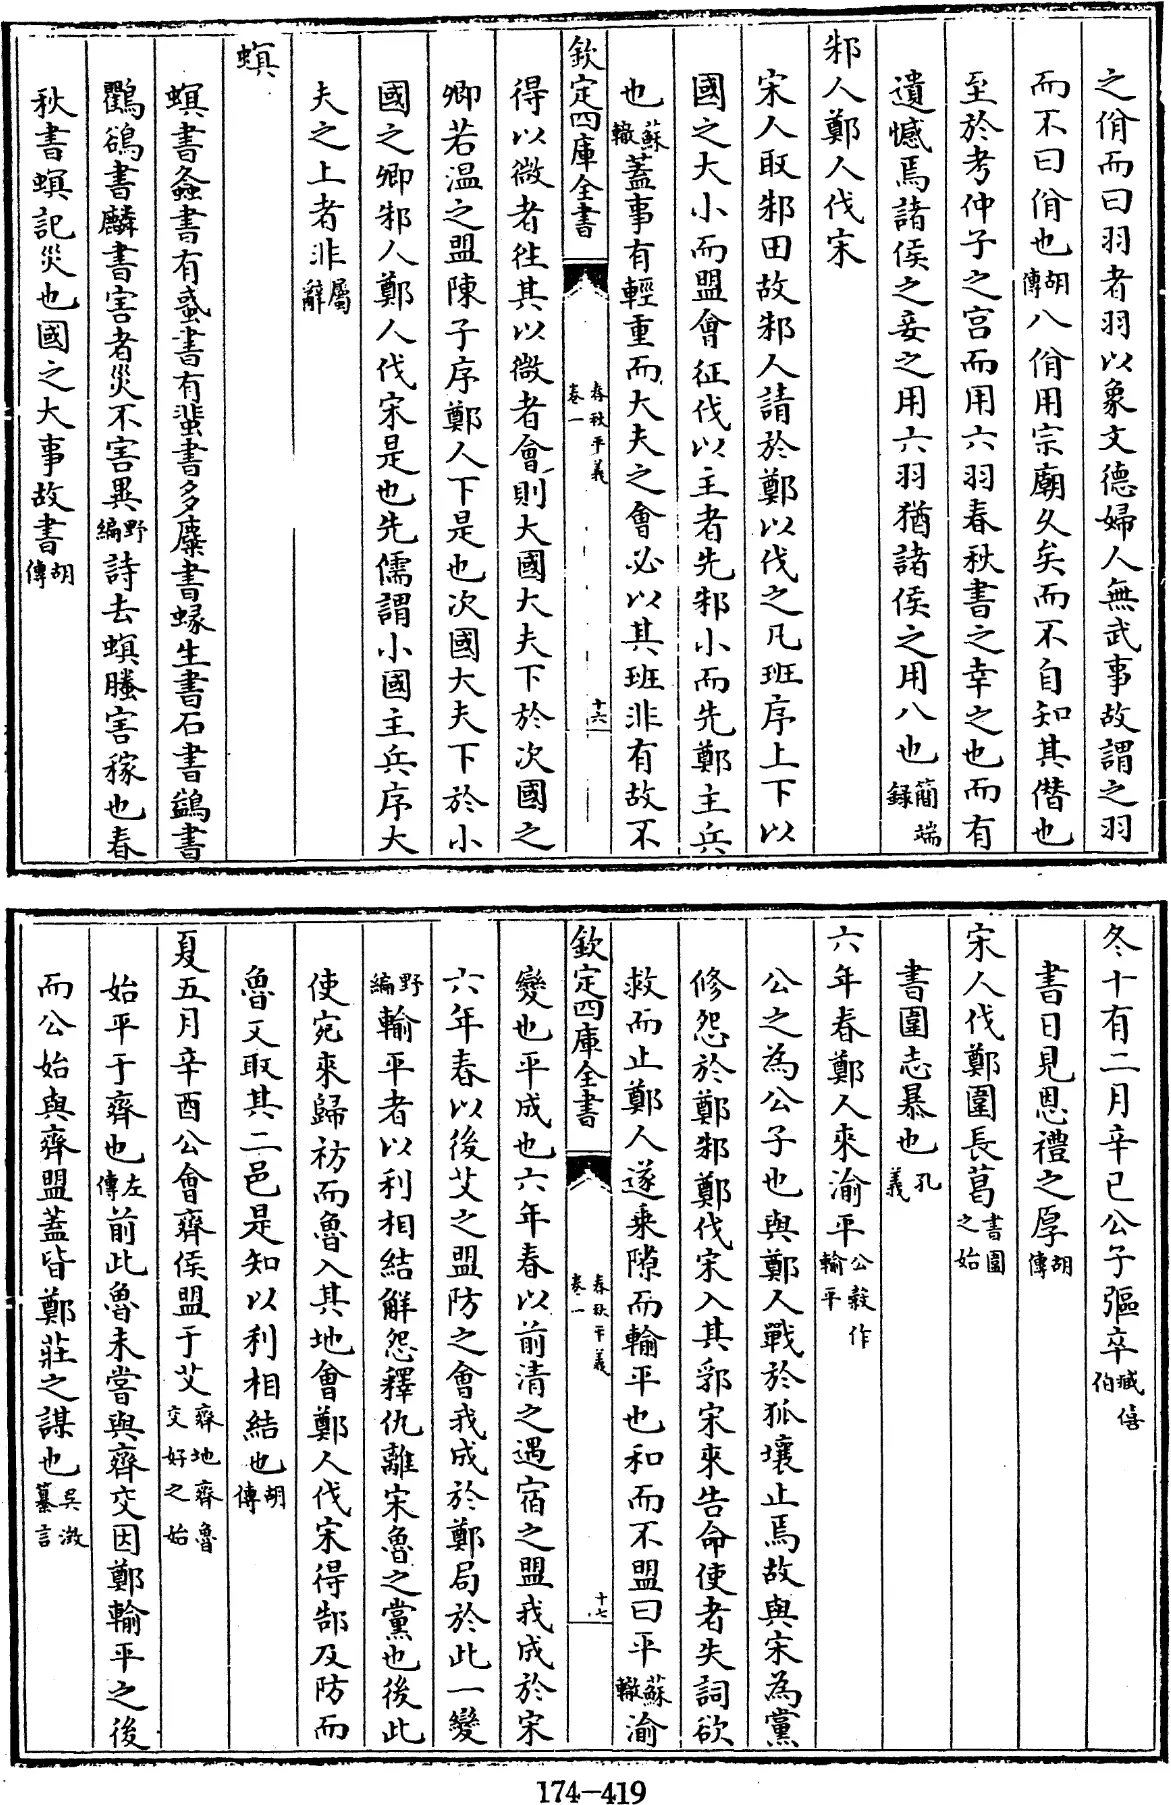 之佾而曰羽者羽以象文德婦人無武事故謂之羽
而不曰佾也胡傳八佾用宗廟久矣而不自知其僭也
至於考仲子之宫而用六羽春秋書之幸之也而有
遺憾焉諸侯之妾之用六羽猶諸侯之用八也簡端録
邾人鄭人伐宋
宋人取邾田故邾人請於鄭以伐之凡班序上下以
國之大小而盟會征伐以主者先邾小而先鄭主兵
也蘇轍蓋事有輕重而大夫之會必以其班非有故不
欽定四庫全書
春秋平義
卷一
十六
得以微者徃其以微者會則大國大夫下於次國之
卿若温之盟陳子序鄭人下是也次國大夫下於小
國之卿邾人鄭人伐宋是也先儒謂小國主兵序大
夫之上者非屬辭
螟
螟書螽書有蜮書有蜚書多麋書蝝生書石書鷁書
鸜鵒書麟書害者災不害異野編詩去螟螣害稼也春
秋書螟記災也國之大事故書胡傳
冬十有二月辛巳公子彄卒臧僖伯
書日見恩禮之厚胡傳
宋人伐鄭圍長葛書圍之始
書圍志暴也孔義
六年春鄭人來渝平公穀作輸平
公之為公子也與鄭人戰於狐壤止焉故與宋為黨
修怨於鄭邾鄭伐宋入其郛宋來告命使者失詞欲
救而止鄭人遂乗隙而輸平也和而不盟曰平蘇轍渝
欽定四庫全書
春秋平義
卷一
十七
變也平成也六年春以前清之遇宿之盟我成於宋
六年春以後艾之盟防之會我成於鄭局於此一變
野編輸平者以利相結解怨釋仇離宋魯之黨也後此
使宛來歸祊而魯入其地會鄭人伐宋得郜及防而
魯又取其二邑是知以利相結也胡傳
夏五月辛酉公會齊侯盟于艾齊地齊魯交好之始
始平于齊也左傳前此魯未嘗與齊交因鄭輸平之後
而公始與齊盟蓋皆鄭莊之謀也吳澂纂言
174-419